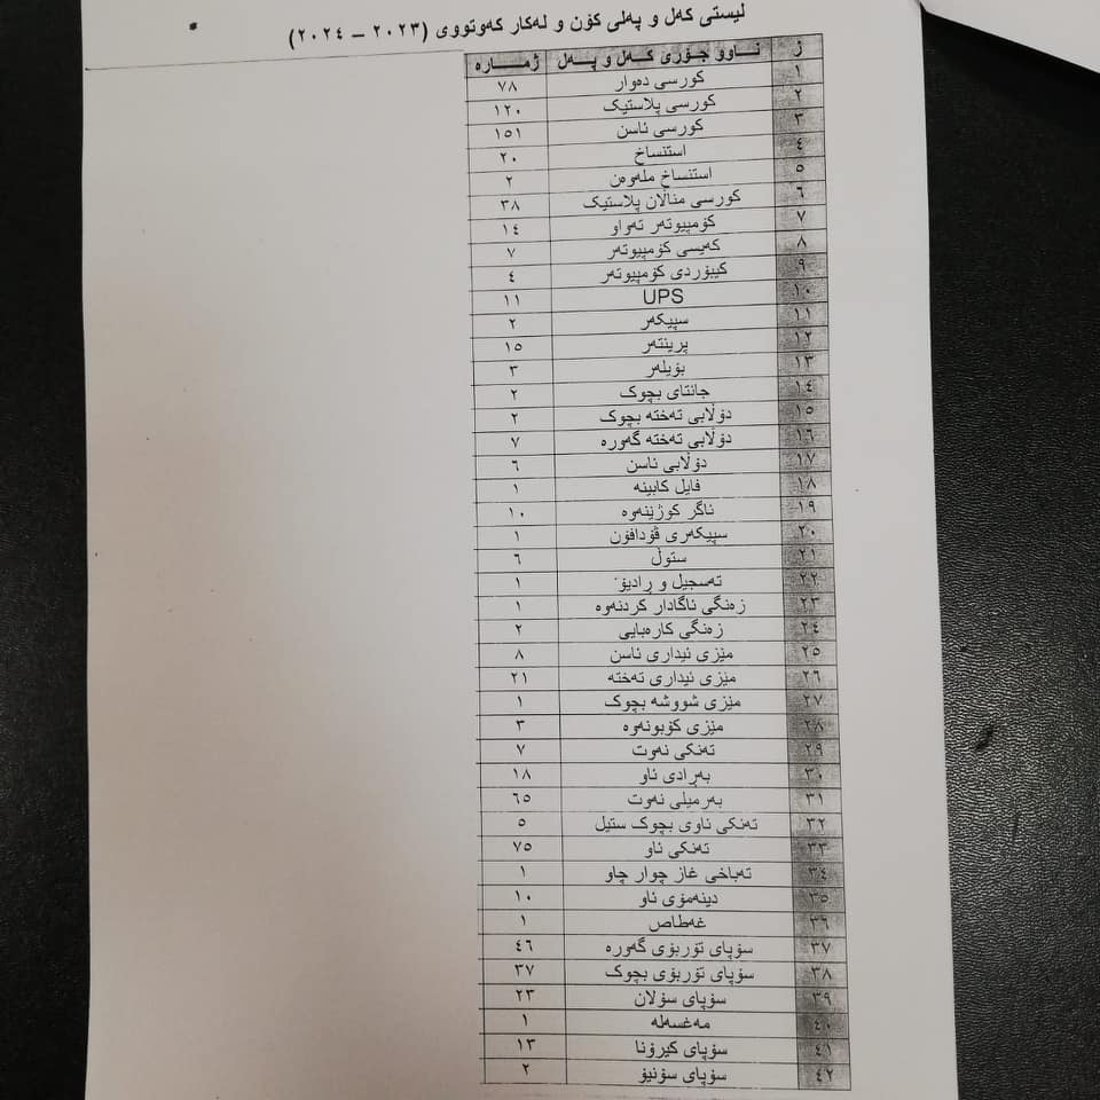 لیستی کەل و پەلی کۆن و لەکار کەوتووی (٢٠٢٣ – ٢٠٢٤)
ژ ناوو جۆری کەل و پەل ژمارە
١ کورسی دەوار ٧٨
٢ کورسی پلاستیک ١٢٠
٣ کورسی ئاسن ١٥١
٤ استنساخ ٢٠
٥ استنساخ ملەوەن ٢
٦ کورسی مناڵان پلاستیک ٣٨
٧ کۆمپیوتەر تەواو ١٤
٨ کەیسی کۆمپیوتەر ٧
٩ کیبۆردی کۆمپیوتەر ٤
١٠ UPS ١١
١١ سپیکەر ٢
١٢ پرینتەر ١٥
١٣ بۆیلەر ٣
١٤ جانتای بچوک ٢
١٥ دۆڵابی تەختە بچوک ٢
١٦ دۆڵابی تەختە گەورە ٧
١٧ دۆڵابی ئاسن ٦
١٨ فایل کابینە ١
١٩ ئاگر کوژێنەوە ١٠
٢٠ سپیکەری ڤۆدافۆن ١
٢١ ستوڵ ٦
٢٢ تەسجیل و ڕادیۆ ١
٢٣ زەنگی ئاگادار کردنەوە ١
٢٤ زەنگی کارەبایی ٢
٢٥ مێزی ئیداری ئاسن ٨
٢٦ مێزی ئیداری تەختە ٢١
٢٧ مێزی شووشە بچوک ١
٢٨ مێزی کۆبونەوە ٣
٢٩ تەنکی نەوت ٧
٣٠ بەڕادی ئاو ١٨
٣١ بەرمیلی نەوت ٦٥
٣٢ تەنکی ئاوی بچوک ستیل ٥
٣٣ تەنکی ئاو ٧٥
٣٤ تەباخی غاز چوار چاو ١
٣٥ دینەمۆی ئاو ١٠
٣٦ غەطاص ١
٣٧ سۆپای تۆربۆی گەورە ٤٦
٣٨ سۆپای تۆربۆی بچوک ٣٧
٣٩ سۆپای سۆلان ٢٣
٤٠ مەغسەلە ١
٤١ سۆپای کیرۆنا ١٣
٤٢ سۆپای سۆنیۆ ٢